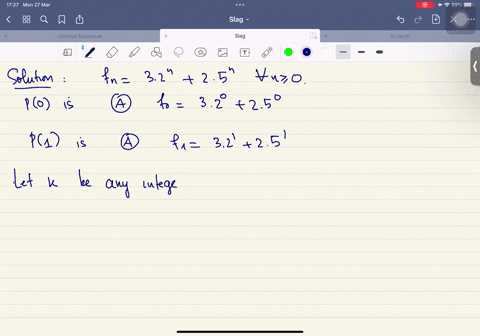 17:27 Mon 27 Mar
89%
Slag
Untitled Notebook
Slag
Scratch
Solution : fn = 3.2ⁿ + 2.5ⁿ ∀n≥0.
P(0) is Ⓐ f₀ = 3.2⁰ + 2.5⁰
P(1) is Ⓐ f₁ = 3.2¹ + 2.5¹
Let k be any intege